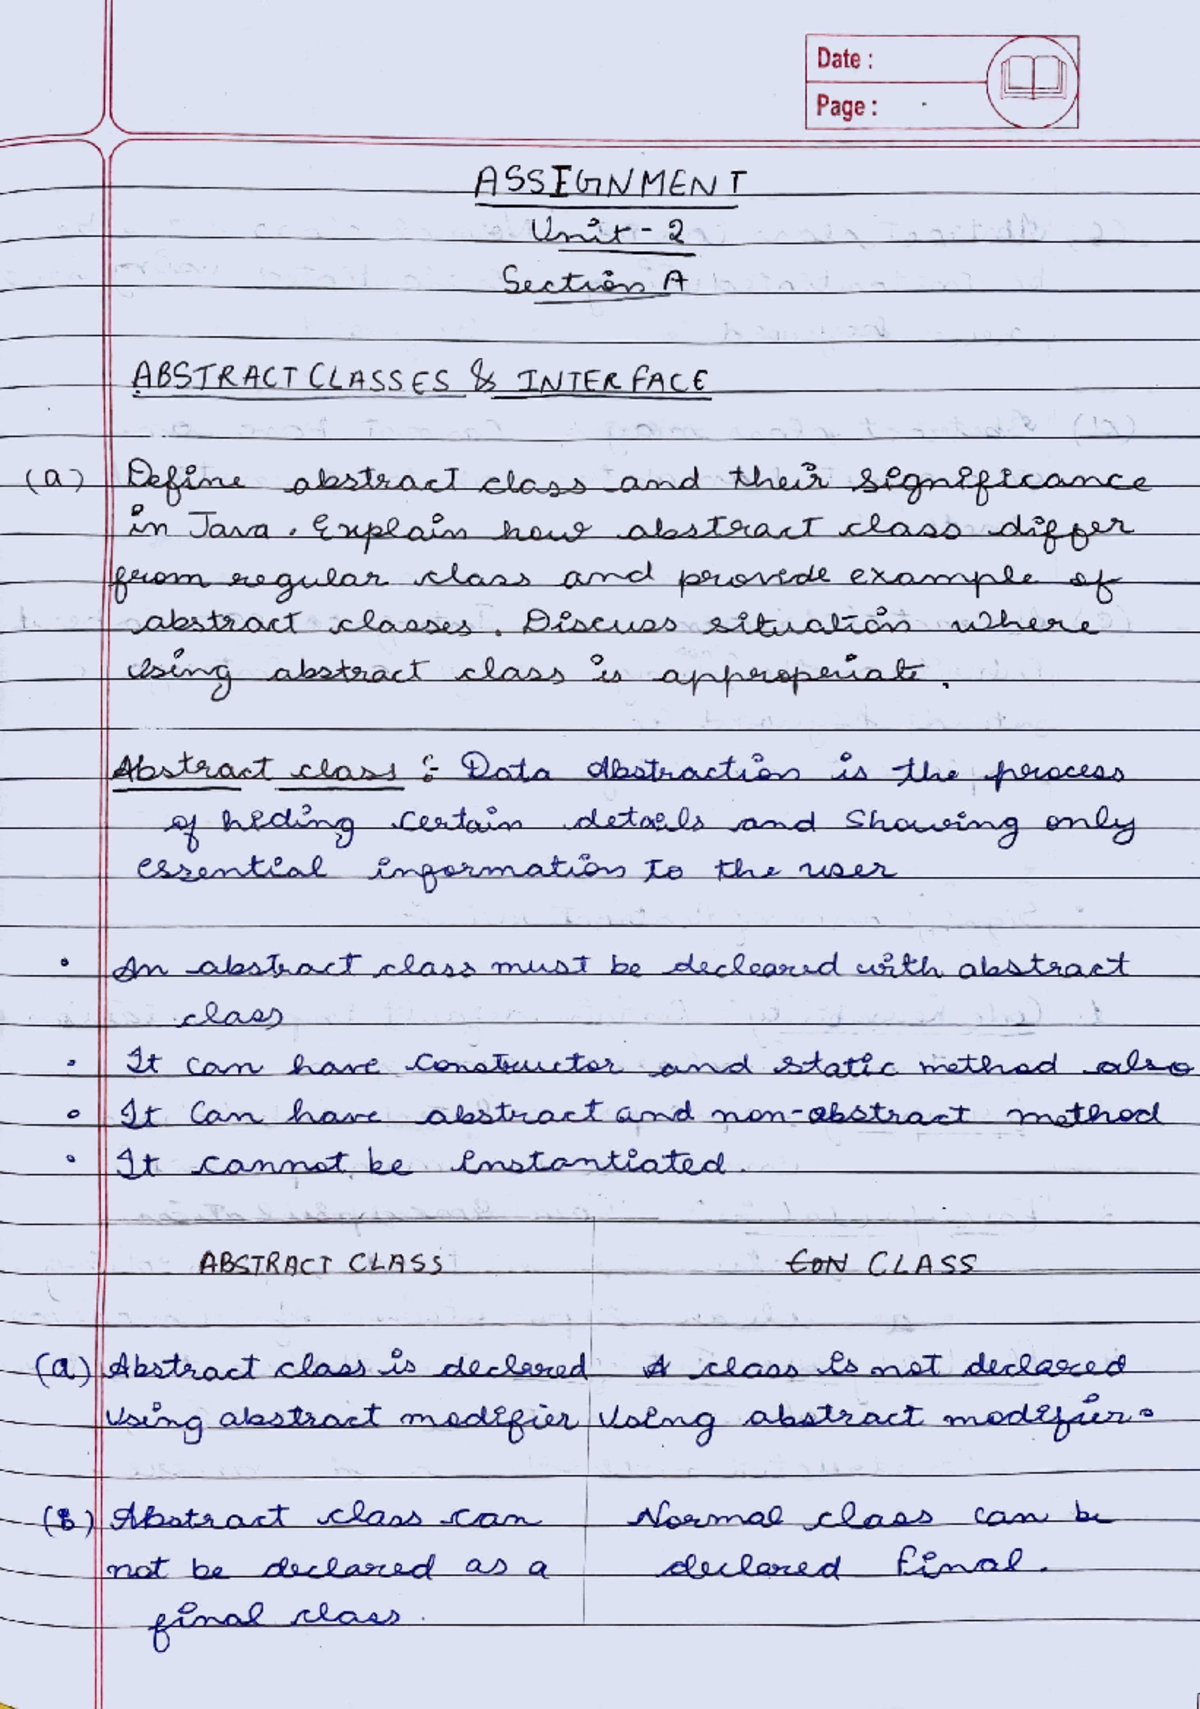 Date :
Page :
ASSIGNMENT
Unit - 2
Section A
ABSTRACT CLASSES & INTERFACE
(a) Define abstract class and their significance
in Java. Explain how abstract class differ
from regular class and provide example of
abstract classes. Discuss situation where
Using abstract class is appropriate.
Abstract class :- Data abstraction is the process
of hiding certain details and showing only
essential information to the user
• An abstract class must be decleared with abstract
class
• It can have constructor and static method also
• It can have abstract and non-abstract method
• It cannot be instantiated.
ABSTRACT CLASS CON CLASS
(a) Abstract class is declared A class is not declared
Using abstract modifier Using abstract modifier.
(B) Abstract class can Normal class can be
not be declared as a declared final.
final class.